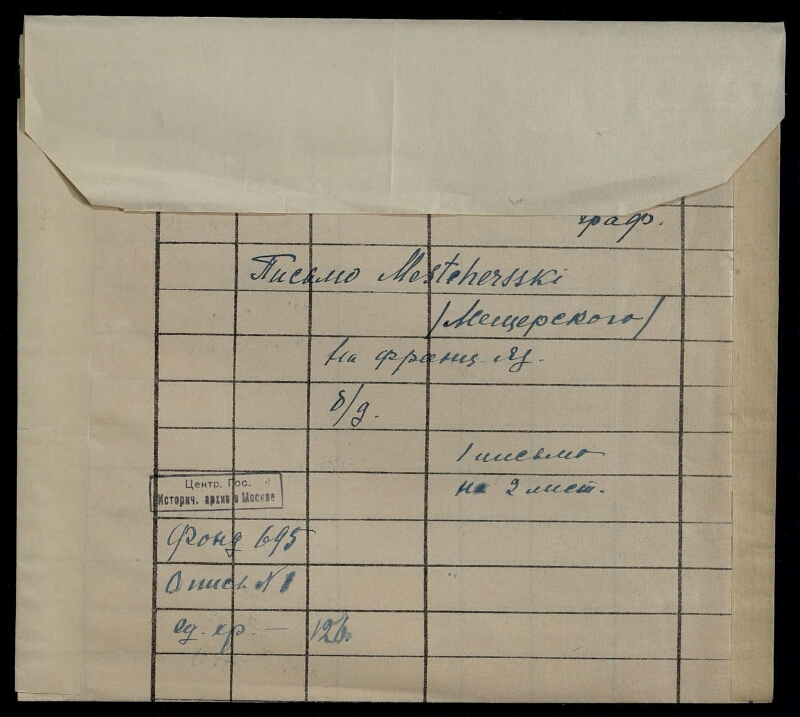 граф.
Письмо Mestchersski
/Мещерского/
на франц. яз.
б/д.
1 письмо
на 2 лист.
Центр. Гос.
Историч. архив в Москве
Фонд 695
Опись № 1
ед. хр. — 126.